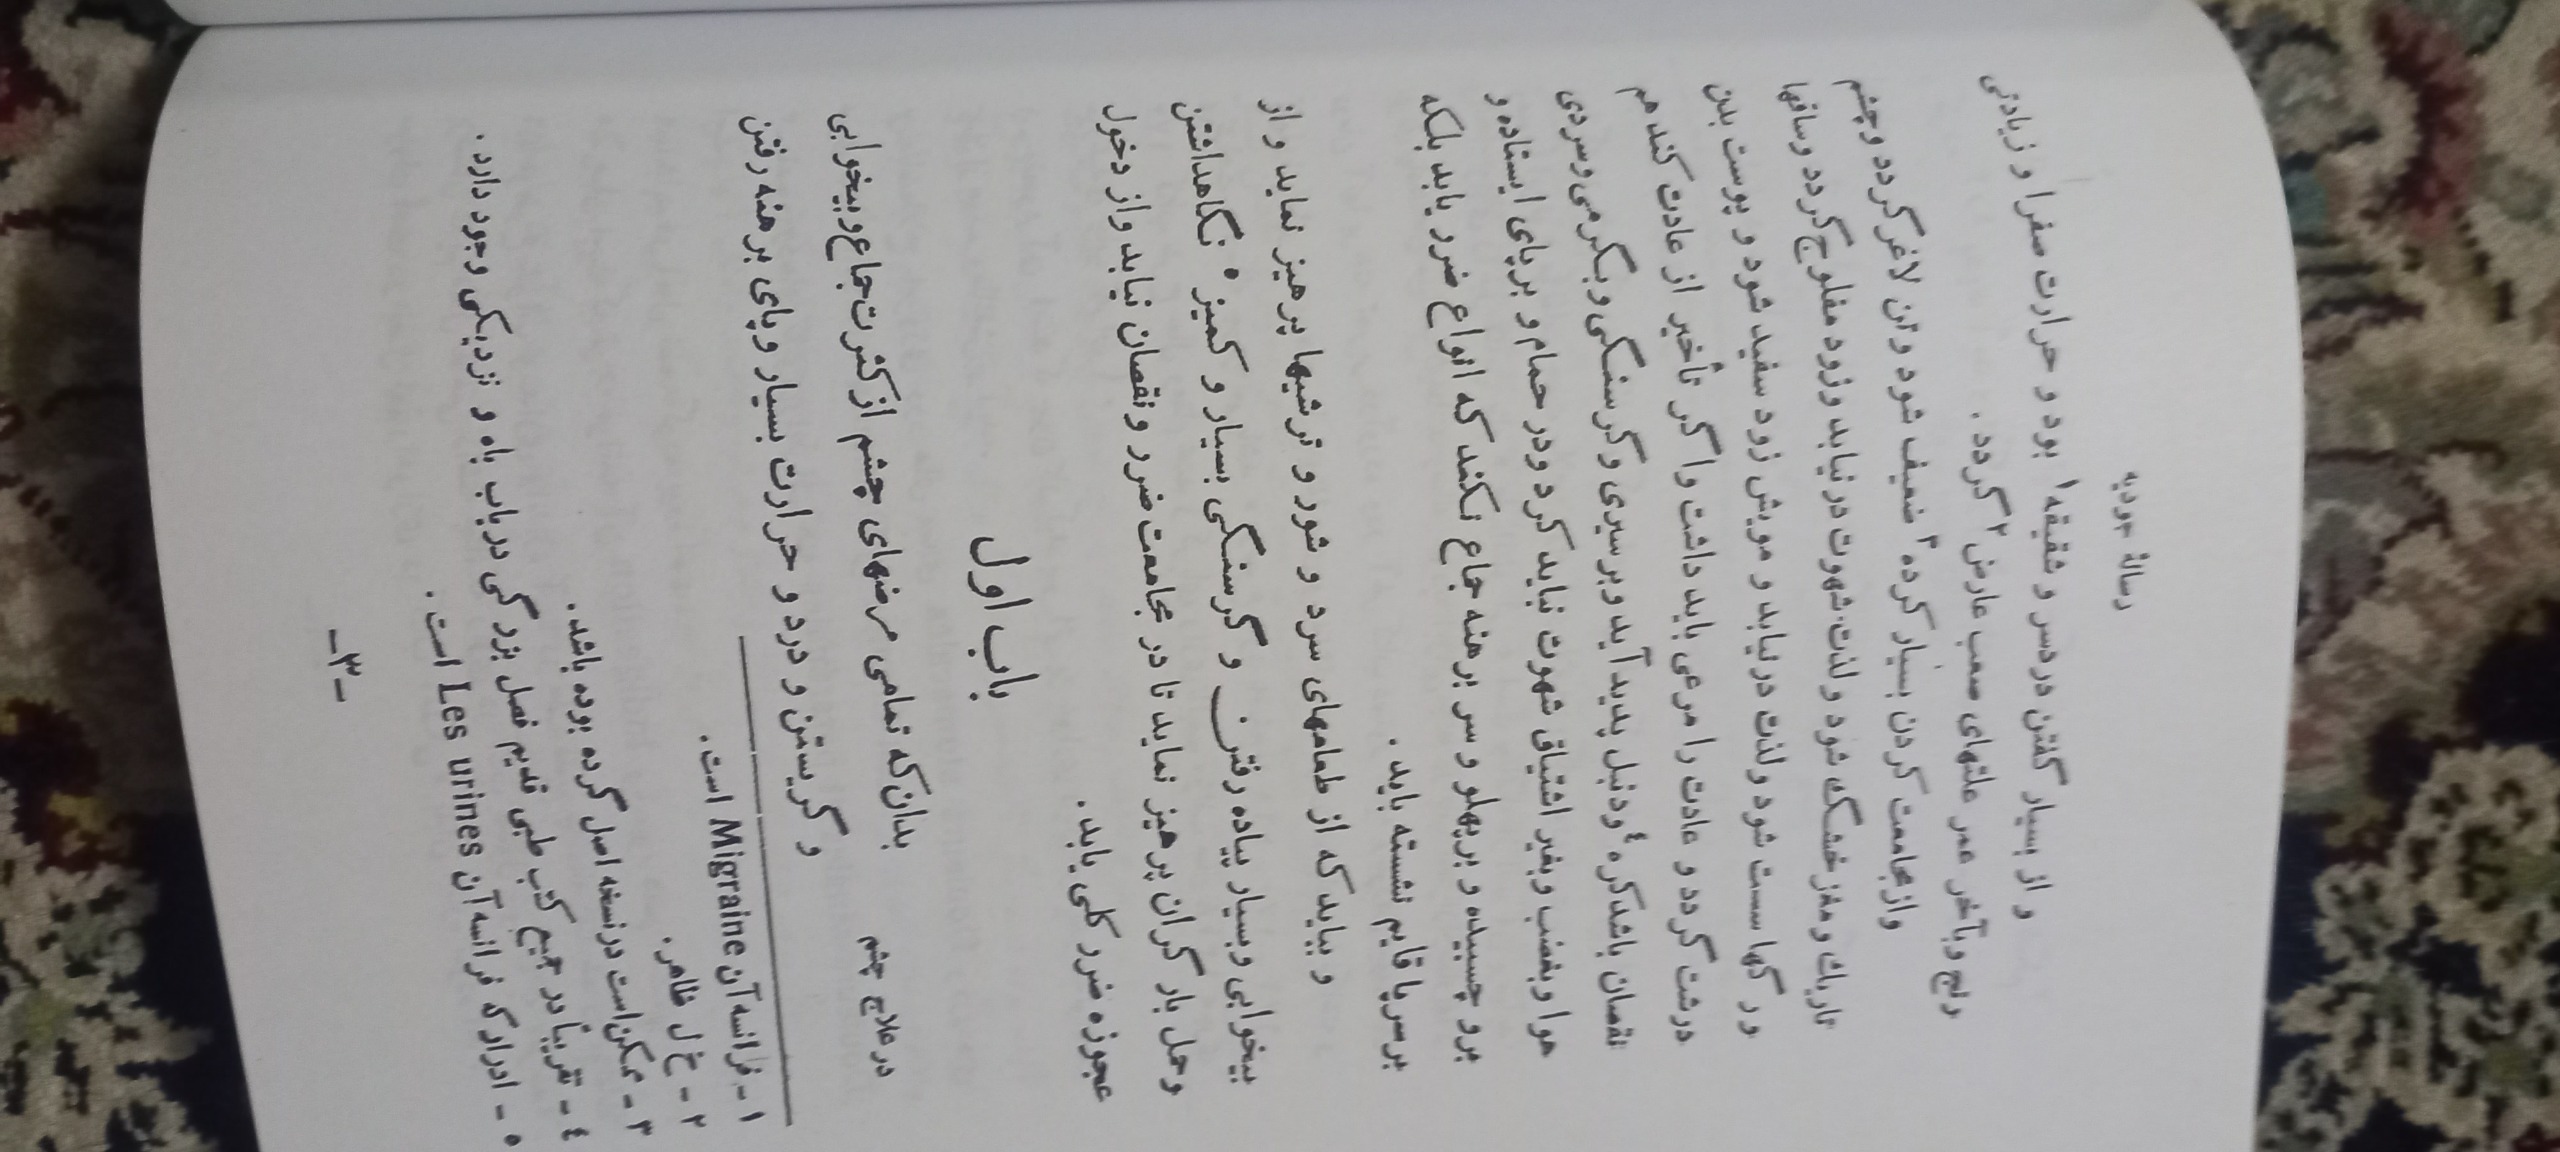 رسالهٔ جودیه
و از بسیار گفتن دردسر و شقیقه۱ بود و حرارت صفرا و زیادتی
رنج و بآخر عمر علتهای صعب عارض۲ گردد .
و از مجامعت کردن بسیار کرده۳ ضعیف شود و تن لاغر گردد و چشم
تاریك و مغز خشك شود و لذت شهوت در نیابد و زود مفلوج گردد و ساقها
و رگها سست شود و لذت در نیابد و مویش زود سفید شود و پوست بدن
درشت گردد و عادت را مرعی باید داشت و اگر تأخیر از عادت کند هم
نقصان باشد کره٤ و دنبل پدید آید و برسیری و گرسنگی و بگرمی و سردی
هوا و بغضب و بغیر اشتیاق شهوت نباید کرد و در حمام و برپای ایستاده و
برو چسبیده و برپهلو و سر برهنه جماع نکند که انواع ضرر یابد بلکه
برسرپا قایم نشسته باید .
و بباید که از طعامهای سرد و شور و ترشیها پرهیز نماید و از
بیخوابی و بسیار پیاده رفتن و گرسنگی بسیار و کمیز۵ نگاهداشتن
و حمل بار گران پرهیز نماید تا در مجامعت ضرر و نقصان نیابد و از دخول
عجوزه ضرر کلی یابد .
باب اول
در علاج چشم بدان که تمامی مرضهای چشم از کثرت جماع و بیخوابی
و گریستن و درد و حرارت بسیار و پای برهنه رفتن
۱ - فرانسه آن Migraine است .
۲ - خ ل ظاهر .
۳ - ممکن است در نسخه اصل گرده بوده باشد .
٤ - تقریباً در جمیع کتب طبی قدیم فصل بزرگی در باب باه و نزدیکی وجود دارد .
۵ - ادرار که فرانسه آن Les urines است .
-۳-